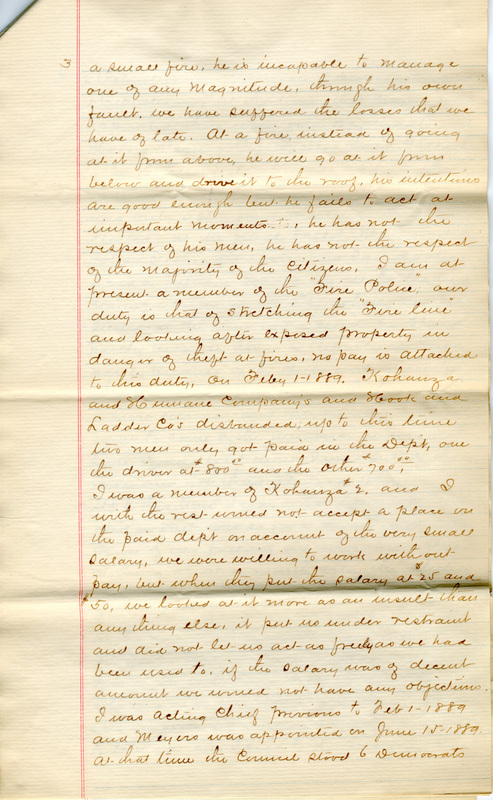 3
a small fire, he is incapable to manage
one of any magnitude, through his own
fault, we have suffered the losses that we
have of late. At a fire, instead of going
at it from above, he will go at it from
below and drive it to the roof, his intentions
are good enough but he fails to act at
important moments, he has not the
respect of his men, he has not the respect
of the majority of the Citizens. I am at
present a member of the "Fire Police", our
duty is that of stretching the "Fire line"
and looking after exposed property in
danger of theft at fires, no pay is attached
to this duty, On Feby 1-1889. Kohanza
and Humane Company's and Hook and
Ladder Co's disbanded, up to this time
two men only got paid in the Dept, one
the driver at $800.00 and the other $700.00,
I was a member of Kohanza #2, and I
with the rest would not accept a place on
the paid dept on account of the very small
salary, we were willing to work without
pay, but when they put the salary at $25 and
$50, we looked at it more as an insult than
any thing else, it put us under restraint
and did not let us act as freely as we had
been used to, if the salary was of decent
amount we would not have any objections.
I was acting Chief previous to Feb 1-1889
and Meyers was appointed on June 15-1889.
at that time the Council stood 6 Democrats